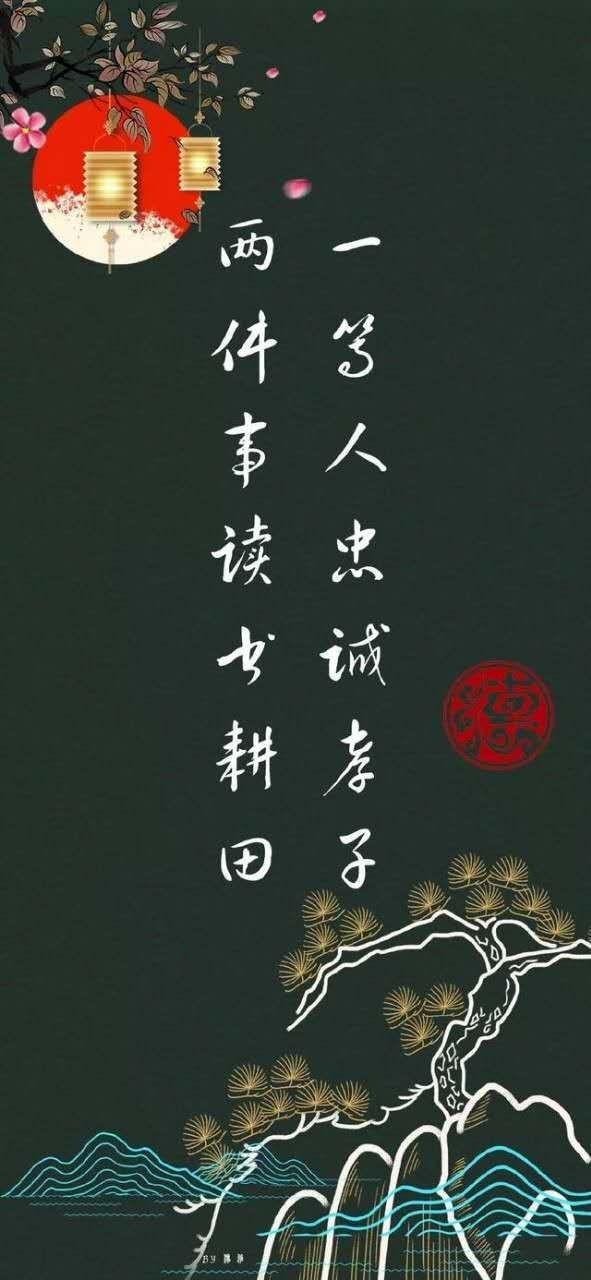 一等人忠诚孝子
两件事读书耕田
德